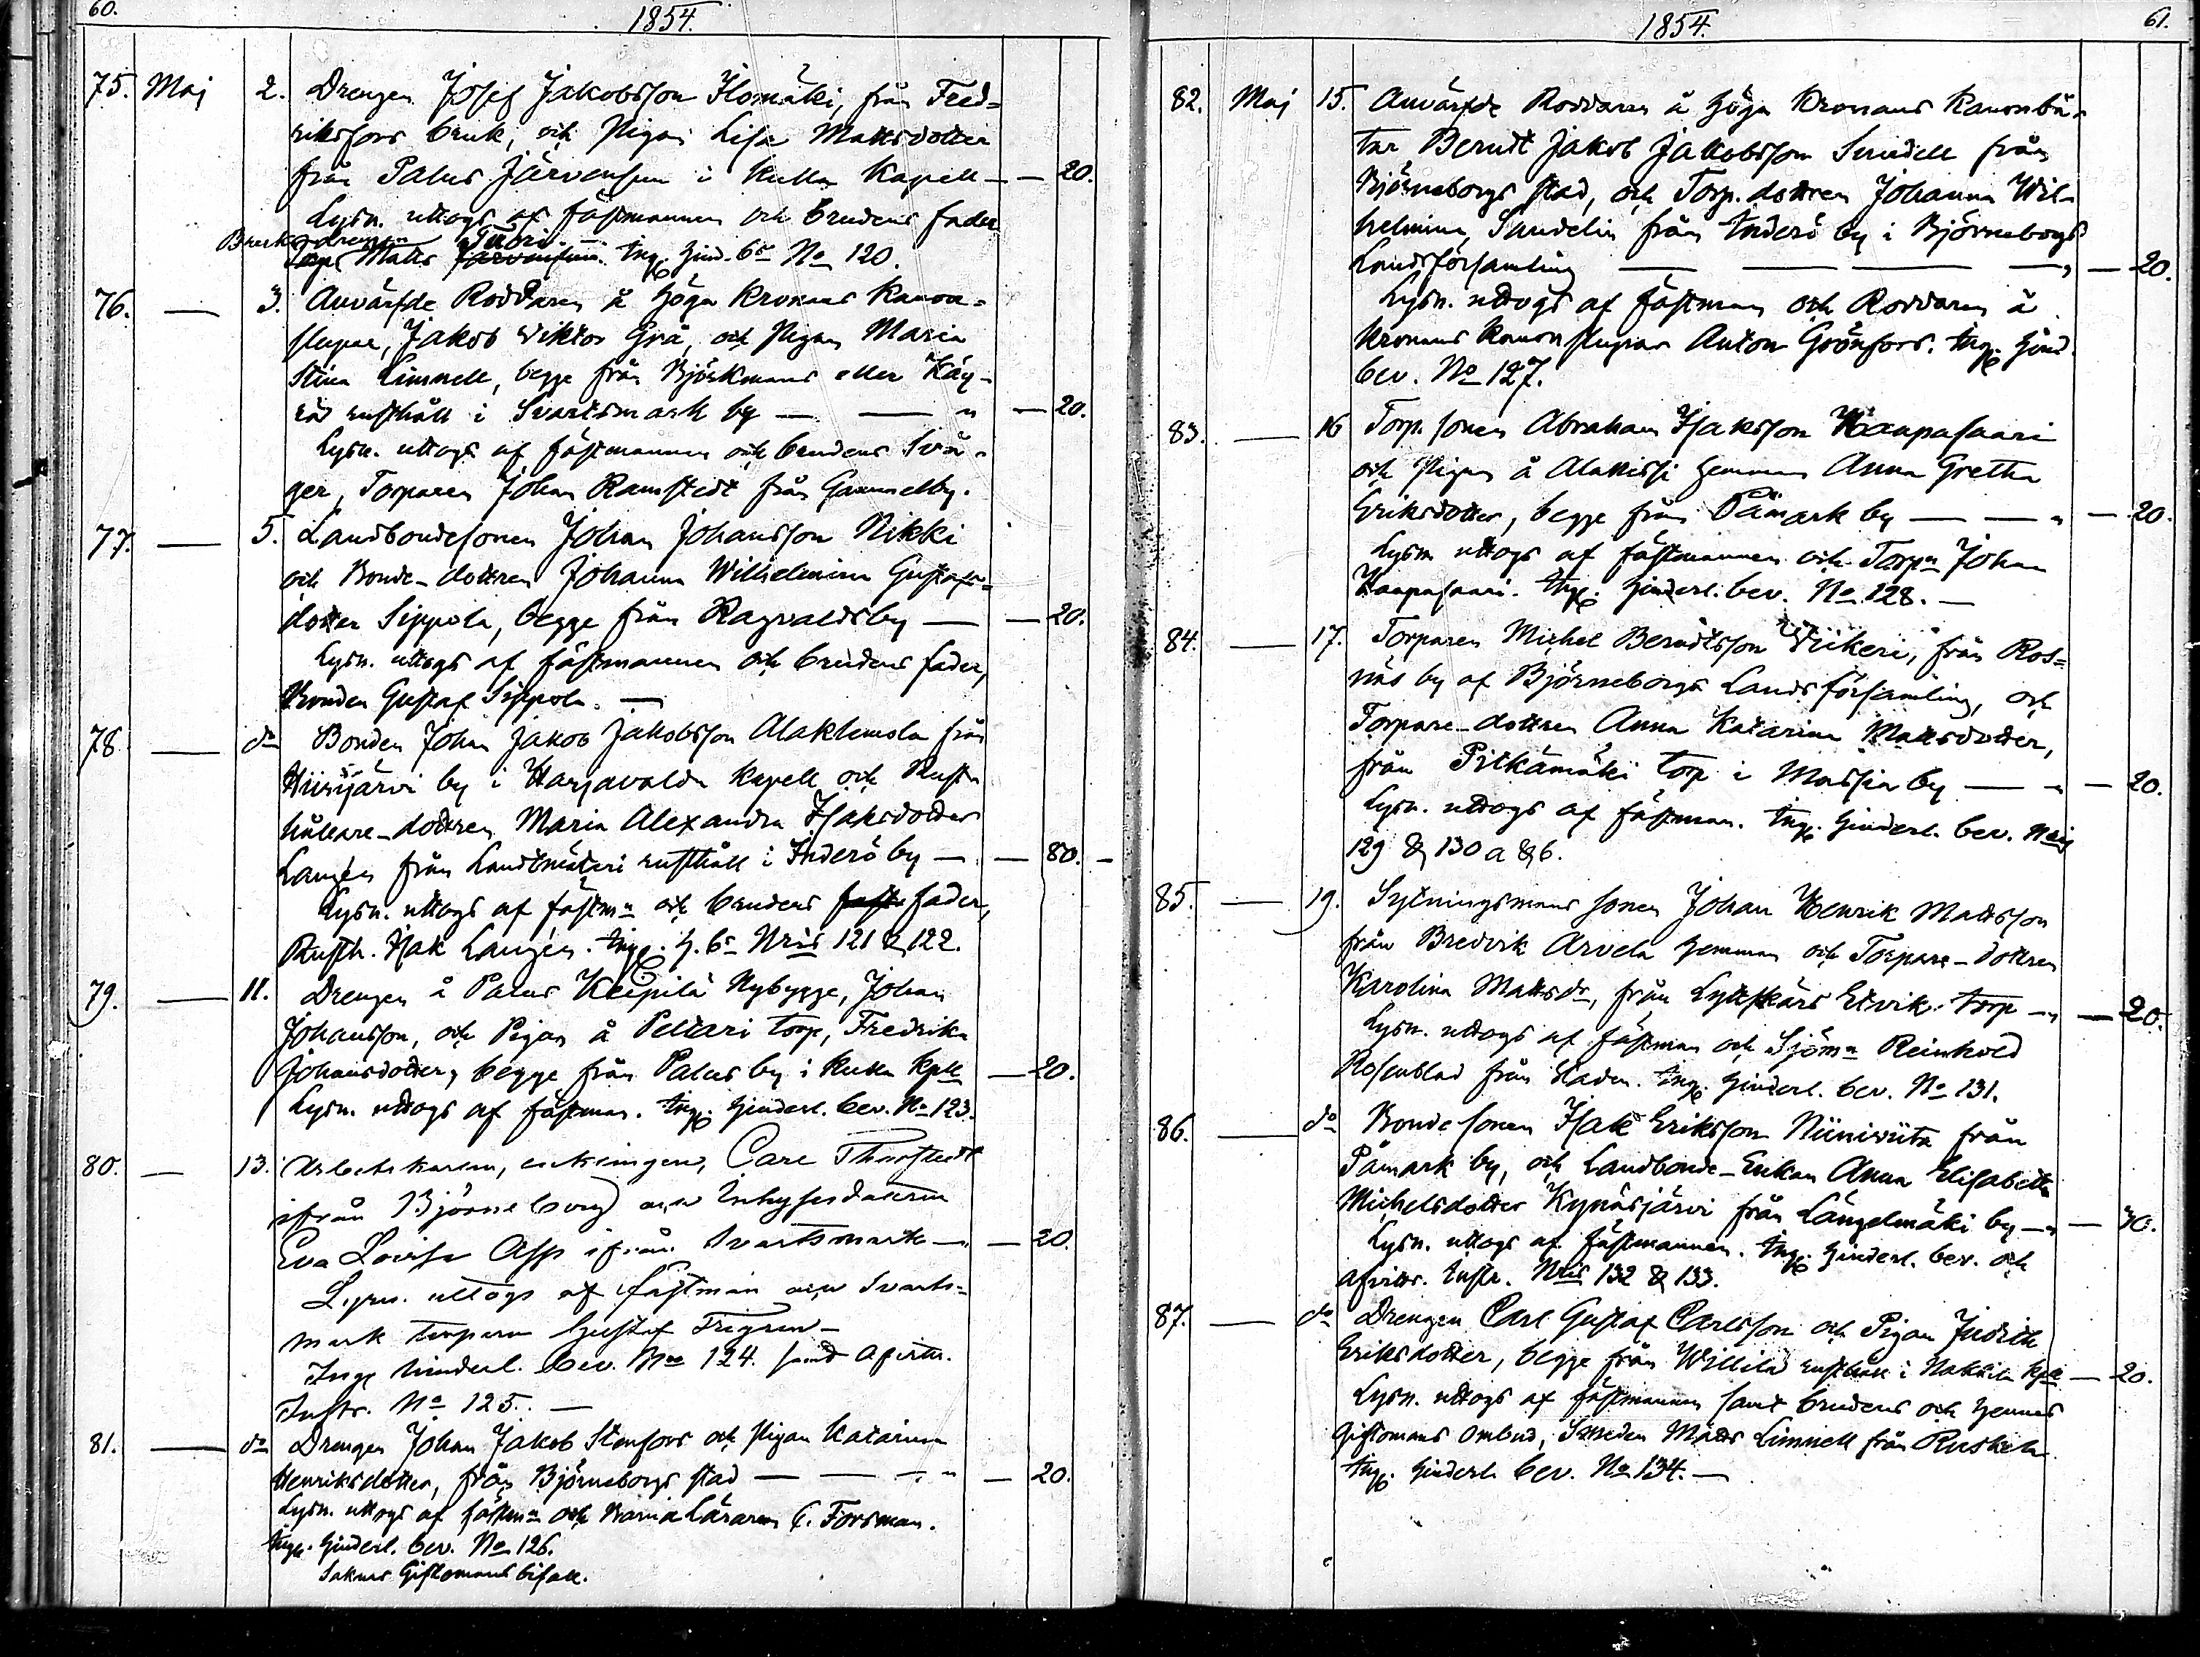 60.
1854.
75. Maj 2. Drengen Josef Jakobsson Ilomäki, från Fred-
riksfors bruk, och Pigan Lisa Mattsdotter
från Palus Järvensuu i Kulla Kapell — — 20.
Lysn. uttogs af fästmannen och brudens fader
Bruksdrengen Tuori
Torp. Matts Järvensuu. Ing. Hind. b:s No 120.
76. — 3. Anvärfde Roddaren å Höga Kronans Kanon-
slupar, Jakob Viktor Grå, och Pigan Maria
Stina Limnell, begge från Björkmans eller
rusthåll i Svartsmark by — — " — 20.
Lysn. uttogs af fästmannen och brudens Svå-
ger, Torparen Johan Ramstedt från Gammelby.
77. — 5. Landbondesonen Johan Johansson Nikki
och Bonde-dottren Johanna Wilhelmina Gustafs-
dotter Sippola, begge från Ragvaldsby — — 20.
Lysn. uttogs af fästmannen och brudens fader,
Bonden Gustaf Sippola. —
78 — do Bonden Johan Jakob Jakobsson Alaklemola från
Hiirijärvi by i Harjavalda Kapell och Rust-
hållare-dottren Maria Alexandra Isaksdotter
Langén från Landtmäteri rusthåll i Inderö by — — 80. —
Lysn. uttogs af fästmn och brudens fader,
Rusth. Isak Langén. Ing. H. b:s Nris 121 & 122.
79. — 11. Drengen å Palus Keipilä Nybygge, Johan
Johansson, och Pigan å Peltari torp, Fredrika
Johansdotter, begge från Palus by i Kulla Kpll — 20.
Lysn. uttogs af fästman. Ing. Hinderl. bev. No 123.
80. — 13. Arbetskarlen, enklingen, Carl Thorstedt
ifrån Björneborg och Inhysesdottren
Eva Lovisa Asp ifrån Svartsmark — — 20.
Lysn. uttogs af fästman och Svarts-
mark torparen Gustaf Frigren —
Inge hinderl. bev. No 124. samt afvittr.
Instr. No 125. —
81. — do Drengen Johan Jakob Stenfors och Pigan Katarina
Henriksdotter, från Björneborgs stad — — " — 20.
Lysn. uttogs af fästmn och Barna Läraren C. Forsman.
Ing. Hinderl. bev. No 126.
Saknas Giftomans bifall.
1854.
61.
82. Maj 15. Anvärfde Roddaren å Höga Kronans Kanonbå-
tar Berndt Jakob Jakobsson Sundell från
Björneborgs stad, och Torp. dottren Johanna Wil-
helmina Sandelin från Inderö by i Björneborgs
Landsförsamling — — — — 20.
Lysn. uttogs af fästman och Roddaren å
Kronans Kanonslupar Anton Grönfors. Ing. Hind.
bev. No 127.
83. — 16 Torp. sonen Abraham Isaksson Haapasaari
och Pigan å Alattissi hemman Anna Gretha
Eriksdotter, begge från Påmark by — — " — 20.
Lysn uttogs af fästmannen och Torpn Johan
Haapasaari. Ing. Hinderl. bev. No 128. —
84. — 17. Torparen Michel Berndtsson Viikeri, från Ros-
näs by af Björneborgs Landsförsamling, och
Torpare-dottren Anna Katarina Mattsdotter,
från Pitkämäki torp i Massia by — " — 20.
Lysn. uttogs af fästman. Ing. Hinderl. bev. Nris
129 & 130 a & b.
85. — 19. Sytningsmans sonen Johan Henrik Mattsson
från Bredvik Arvela hemman och Torpare-dottren
Karolina Mattsdr, från Lyttskärs Elvik torp — " — 20.
Lysn. uttogs af fästman och Sjömn Reinhold
Rosenblad från staden. Ing. Hinderl. bev. No 131.
86. — do Bondesonen Isak Eriksson Niiniviita från
Påmark by, och Landbonde-Enkan Anna Elisabeth
Michelsdotter Kynäsjärvi från Längelmäki by — " — 30.
Lysn. uttogs af fästmannen. Ing. Hinderl. bev. och
Afvittr. Instr. Nris 132 & 133.
87. — do Drengen Carl Gustaf Carlsson och Pigan Judith
Eriksdotter, begge från Willilä rusthåll i Nakkila Kpll — 20.
Lysn. uttogs af fästmannen samt brudens och hennes
Giftomans ombud, Matts Limnell från Ruskela
Ing. Hinderl. bev. No 134. —